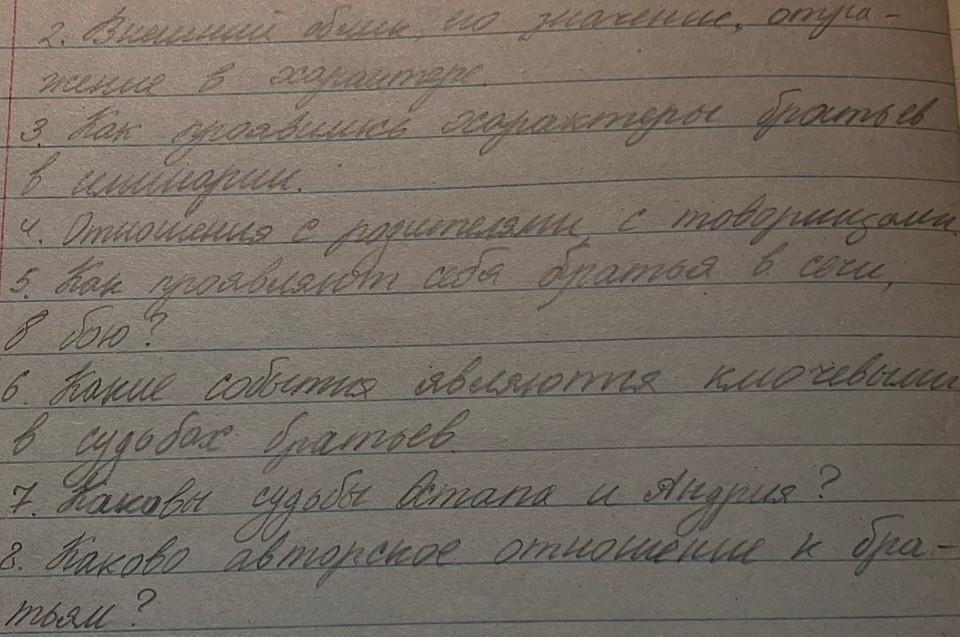 2. Внешний облик, его значение, отра-
жение в характере.
3. Как проявились характеры братьев
в семинарии.
4. Отношения с родителями, с товарищами
5. Как проявляют себя братья в сечи,
в бою?
6. Какие события являются ключевыми
в судьбах братьев.
7. Каковы судьбы Остапа и Андрия?
8. Каково авторское отношение к бра-
тьям?